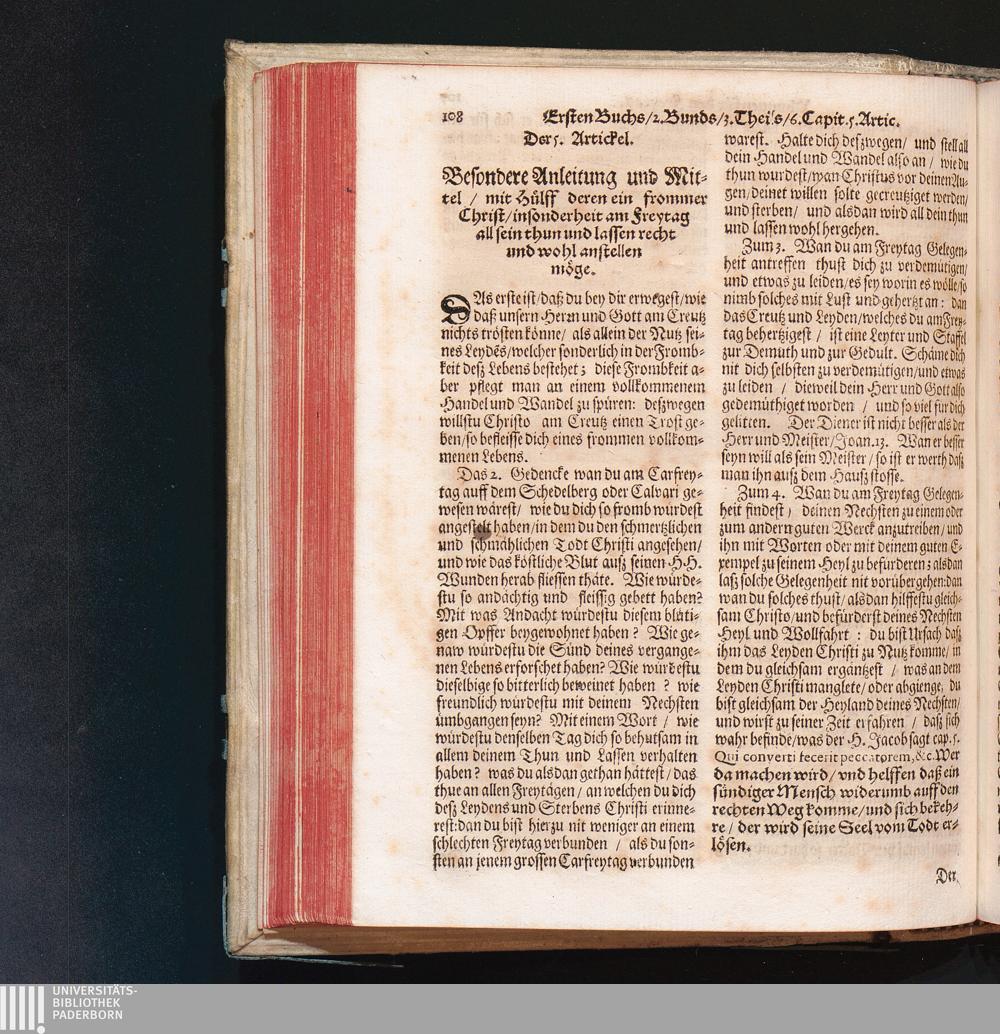 108 Ersten Buchs/2. Bunds/3. Theils/6. Capit. 5. Artic.
Der 5. Artickel.
Besondere Anleitung und Mit-
tel / mit Hülff deren ein frommer
Christ/insonderheit am Freytag
all sein thun und lassen recht
und wohl anstellen
möge.
DAs erste ist/daß du bey dir erwegest/wie
daß unsern Herrn und Gott am Creutz
nichts trösten könne/ als allein der Nutz sei-
nes Leydēs/welcher sonderlich in der Fromb-
keit deß Lebens bestehet; diese Frombkeit a-
ber pflegt man an einem vollkommenem
Handel und Wandel zu spüren: deßwegen
willstu Christo am Creutz einen Trost ge-
ben/so befleisse dich eines frommen vollkom-
menen Lebens.
Das 2. Gedencke wan du am Carfrey-
tag auff dem Schedelberg oder Calvari ge-
wesen wärest/ wie du dich so fromb würdest
angestelt haben/in dem du den schmertzlichen
und schmählichen Todt Christi angesehen/
und wie das köstliche Blut auß seinen H.H.
Wunden herab fliessen thäte. Wie würde-
stu so andächtig und fleissig gebett haben?
Mit was Andacht würdestu diesem blüti-
gen Opffer beygewohnet haben? Wie ge-
naw würdestu die Sünd deines vergange-
nen Lebens erforschet haben? Wie würdestu
dieselbige so bitterlich beweinet haben ? wie
freundlich würdestu mit deinem Nechsten
umbgangen seyn? Mit einem Wort / wie
würdestu denselben Tag dich so behutsam in
allem deinem Thun und Lassen verhalten
haben? was du alsdan gethan hättest/das
thue an allen Freytägen/an welchen du dich
deß Leydens und Sterbens Christi erinne-
rest:dan du bist hierzu nit weniger an einem
schlechten Freytag verbunden / als du son-
sten an jenem grossen Carfreytag verbunden
warest. Halte dich deßwegen/ und stell all
dein Handel und Wandel also an / wie du
thun würdest/wan Christus vor deinen Au-
gen/deinet willen solte gecreutziget werden/
und sterben/ und alsdan wird all dein thun
und lassen wohl hergehen.
Zum 3. Wan du am Freytag Gelegen-
heit antreffen thust dich zu verdemütigen/
und etwas zu leiden/es sey worin es wölle/so
nimb solches mit Lust und gehertzt an: dan
das Creutz und Leyden/welches du am Frey-
tag behertzigest / ist eine Leyter und Staffel
zur Demuth und zur Gedult. Schäme dich
nit dich selbsten zu verdemütigen/und etwas
zu leiden / dieweil dein Herr und Gott also
gedemüthiget worden / und so viel für dich
gelitten. Der Diener ist nicht besser als der
Herr und Meister/Joan.13. Wan er besser
seyn will als sein Meister/so ist er werth daß
man ihn auß dem Hauß stosse.
Zum 4. Wan du am Freytag Gelegen-
heit findest, deinen Nechsten zu einem oder
zum andern guten Werck anzutreiben/und
ihn mit Worten oder mit deinem guten E-
xempel zu seinem Heyl zu befürderen; alsdan
laß solche Gelegenheit nit vorübergehen:dan
wan du solches thust/alsdan hilffestu gleich-
sam Christo/und befürderst deines Nechsten
Heyl und Wollfahrt : du bist Ursach daß
ihm das Leyden Christi zu Nutz komme/ in
dem du gleichsam ergäntzest / was an dem
Leyden Christi manglete/oder abgienge, du
bist gleichsam der Heyland deines Nechsten/
und wirst zu seiner Zeit erfahren / daß sich
wahr befinde/was der H. Jacob sagt cap. 5.
Qui converti fecerit peccatorem, &c. Wer
da machen wird/ vnd helffen daß ein
sündiger Mensch widerumb auff den
rechten Weg komme/und sich bekeh-
re / der wird seine Seel vom Todt er-
lösen.
Der
UNIVERSITÄTS-
BIBLIOTHEK
PADERBORN